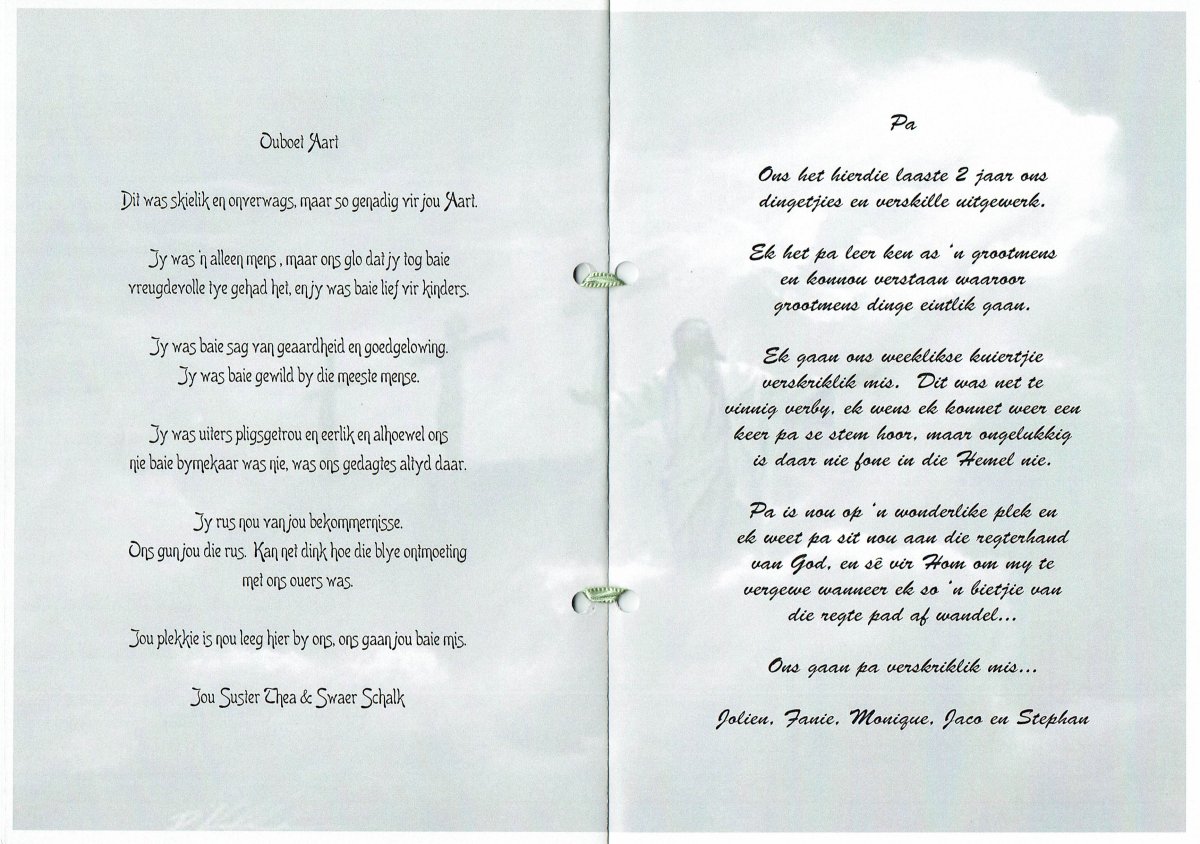 Ouboet Aart
Dit was skielik en onverwags, maar so genadig vir jou Aart.
Jy was 'n alleen mens , maar ons glo dat jy tog baie
vreugdevolle tye gehad het, en jy was baie lief vir kinders.
Jy was baie sag van geaardheid en goedgelowing.
Jy was baie gewild by die meeste mense.
Jy was uiters pligsgetrou en eerlik en alhoewel ons
nie baie bymekaar was nie, was ons gedagtes altyd daar.
Jy rus nou van jou bekommernisse.
Ons gun jou die rus. Kan net dink hoe die blye ontmoeting
met ons ouers was.
Jou plekkie is nou leeg hier by ons, ons gaan jou baie mis.
Jou Suster Thea & Swaer Schalk
Pa
Ons het hierdie laaste 2 jaar ons
dingetjies en verskille uitgewerk.
Ek het pa leer ken as 'n grootmens
en konnou verstaan waaroor
grootmens dinge eintlik gaan.
Ek gaan ons weeklikse kuiertjie
verskriklik mis. Dit was net te
vinnig verby, ek wens ek konnet weer een
keer pa se stem hoor, maar ongelukkig
is daar nie fone in die Hemel nie.
Pa is nou op 'n wonderlike plek en
ek weet pa sit nou aan die regterhand
van God, en sê vir Hom om my te
vergewe wanneer ek so 'n bietjie van
die regte pad af wandel...
Ons gaan pa verskriklik mis...
Jolien, Fanie, Monique, Jaco en Stephan